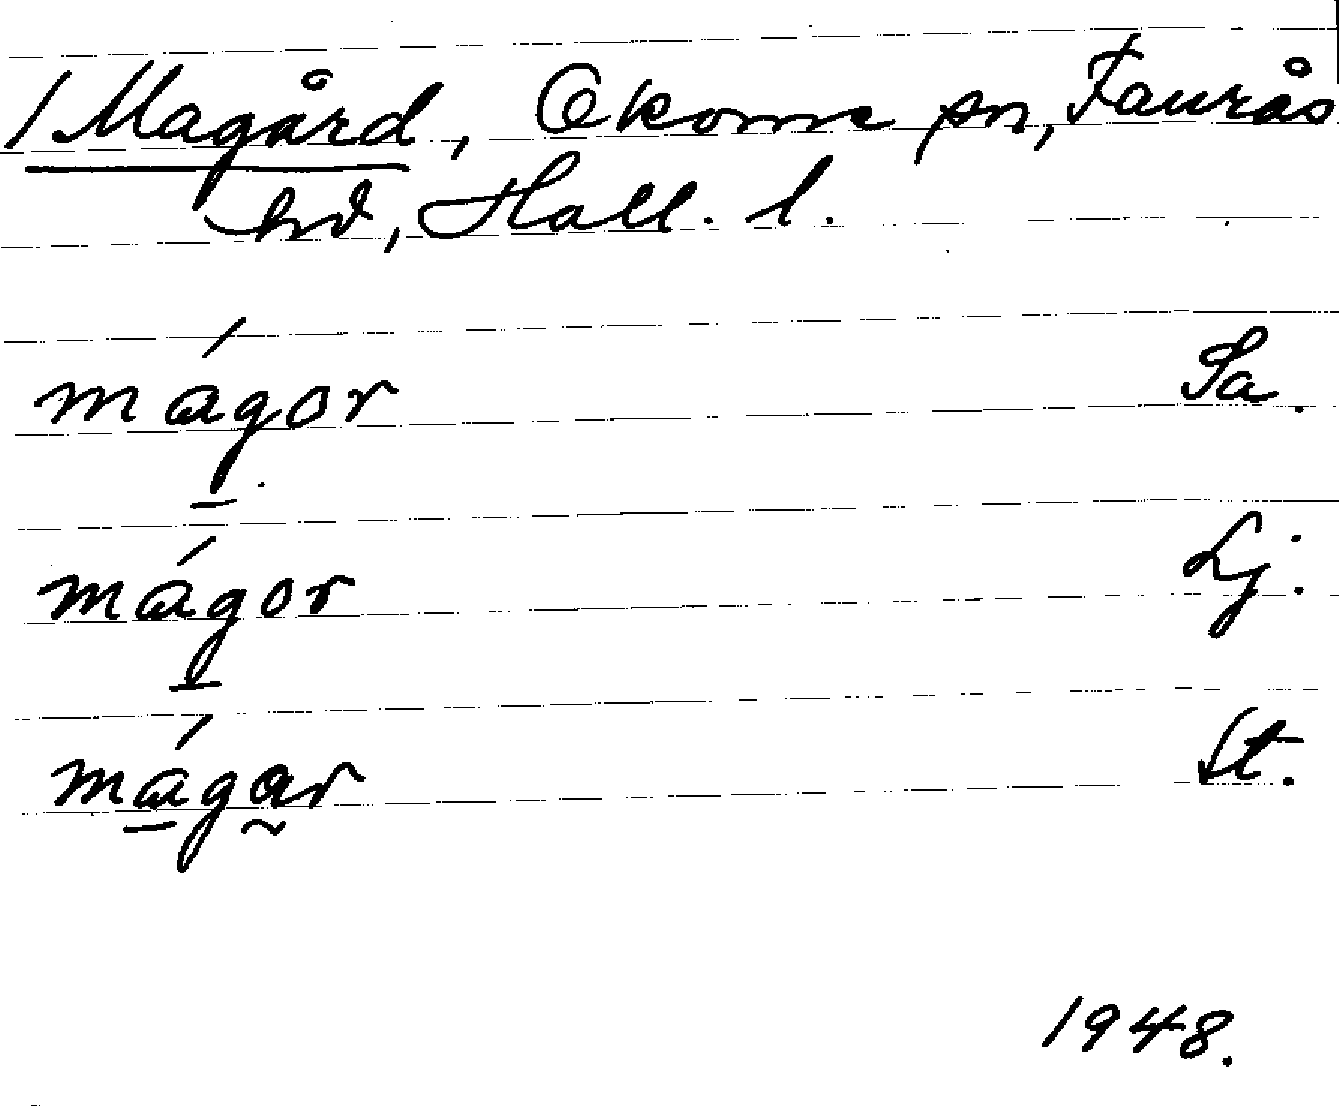 / Magård, Okome sn, Faurås
hd, Hall. l.
mágor Sa.
mágor Lj.
mágar St.
1948.